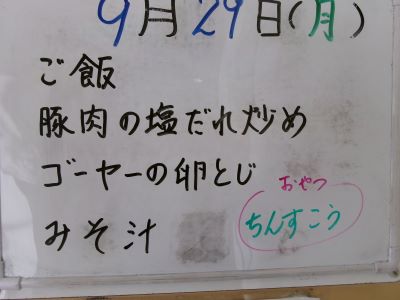 9月29日(月)
ご飯
豚肉の塩だれ炒め
ゴーヤーの卵とじ
みそ汁
おやつ
ちんすこう